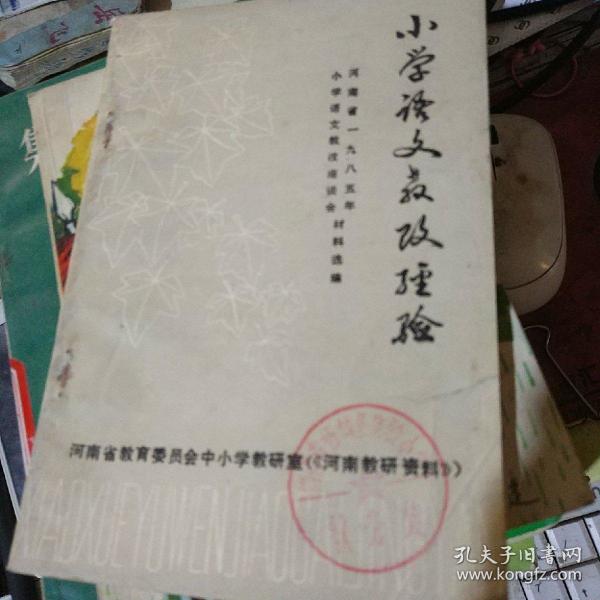 小学语文教改经验
河南省一九八五年
小学语文教改座谈会
材料选编
河南省教育委员会中小学教研室(《河南教研资料》)
XIAOXUEYUWENJIAO
孔夫子旧书网
www.kongfz.com